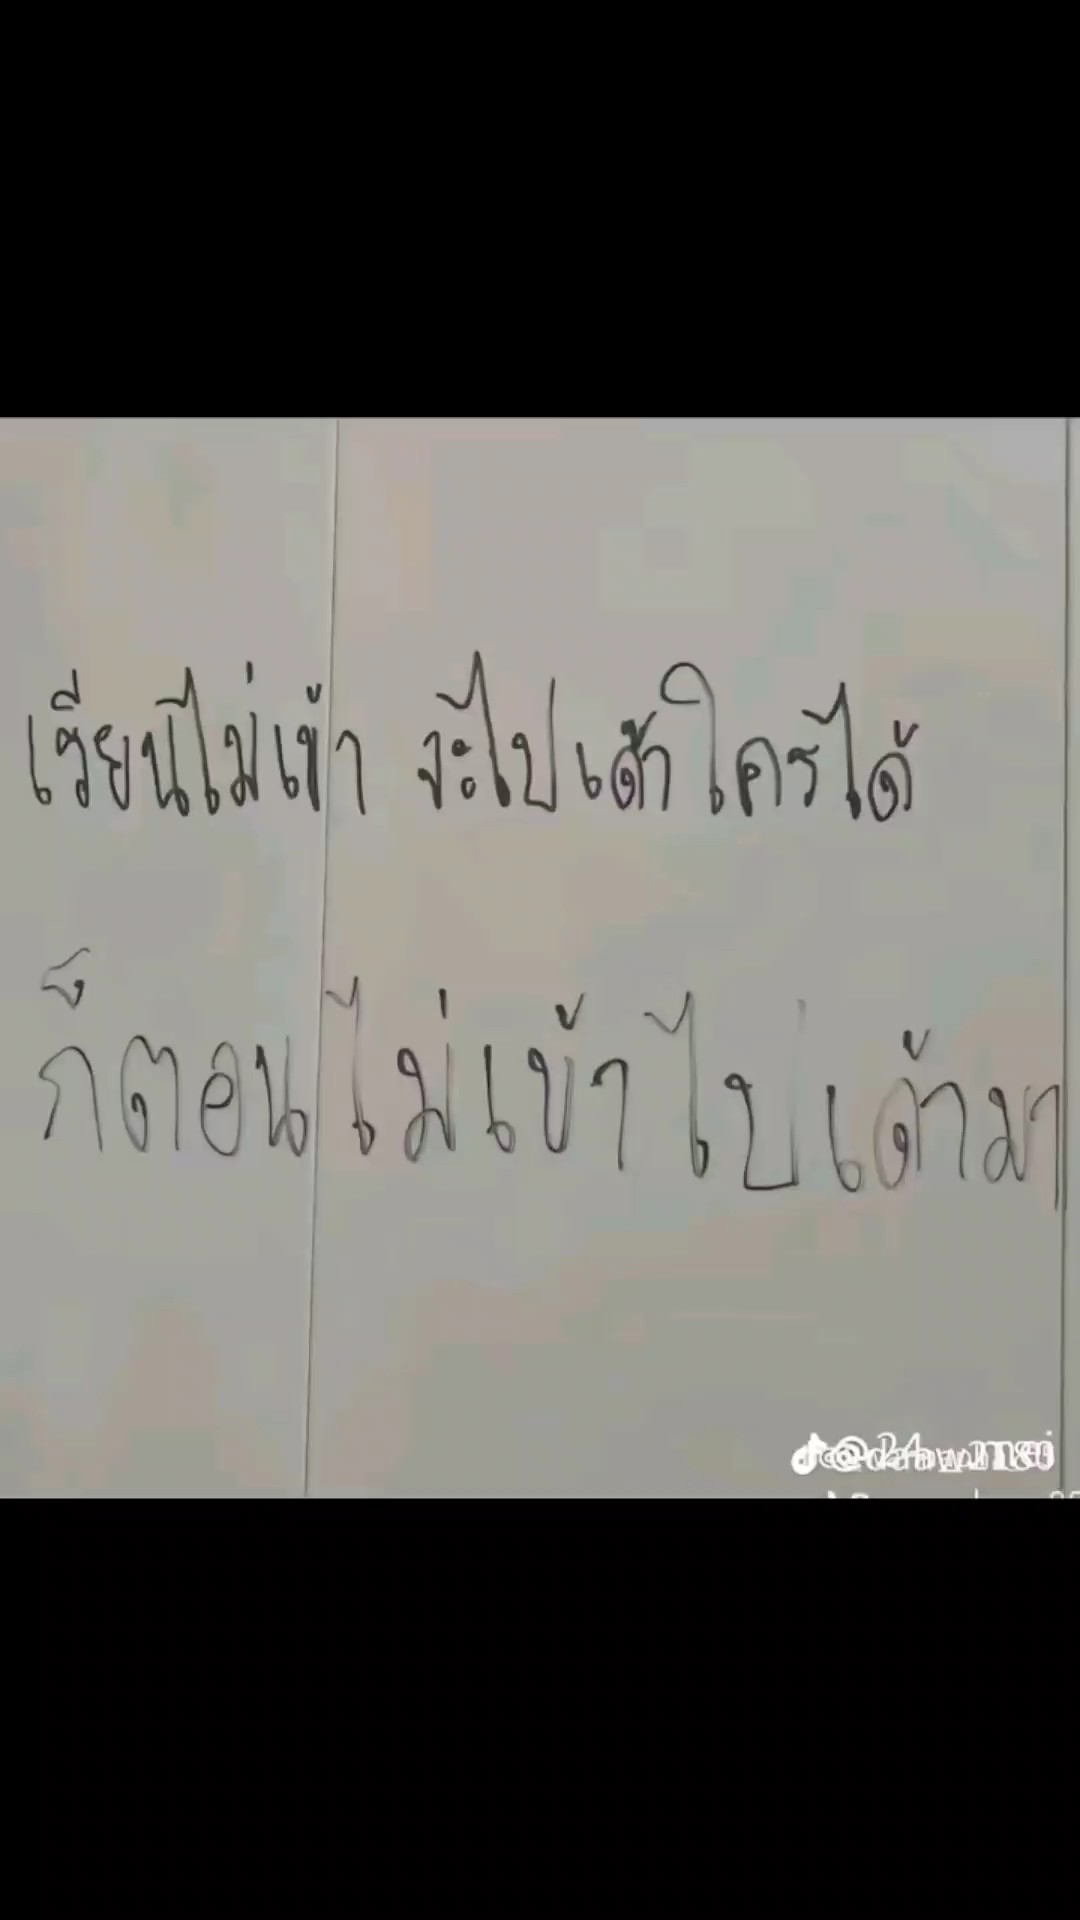 เรียนไม่เข้า จะไปเด้าใครได้
ก็ตอนไม่เข้าไปเด้ามา